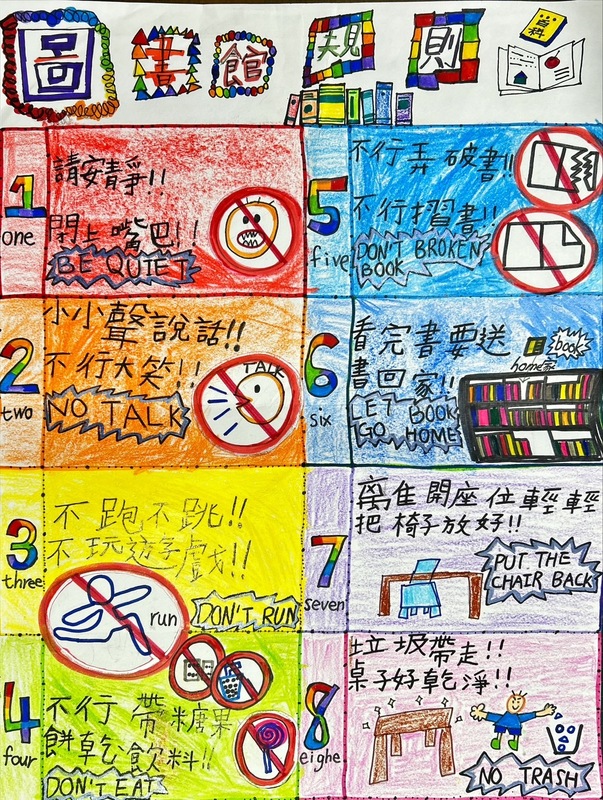 圖書館規則
百科
1
one
請安靜!!
閉上嘴巴!!
BE QUIET
2
two
小小聲說話!!
不行大笑!!
NO TALK
TALK
3
three
不跑不跳!!
不玩遊戲!!
run
DON'T RUN
4
four
不行帶糖果
餅乾飲料!!
DON'T EAT
5
five
不行弄破書!!
不行摺書!!
DON'T BROKEN
BOOK
6
six
看完書要送
書回家!!
book
home家
LET BOOK
GO HOME
7
seven
離開座位輕輕
把椅子放好!!
PUT THE
CHAIR BACK
8
eighe
垃圾帶走!!
桌子好乾淨!!
NO TRASH